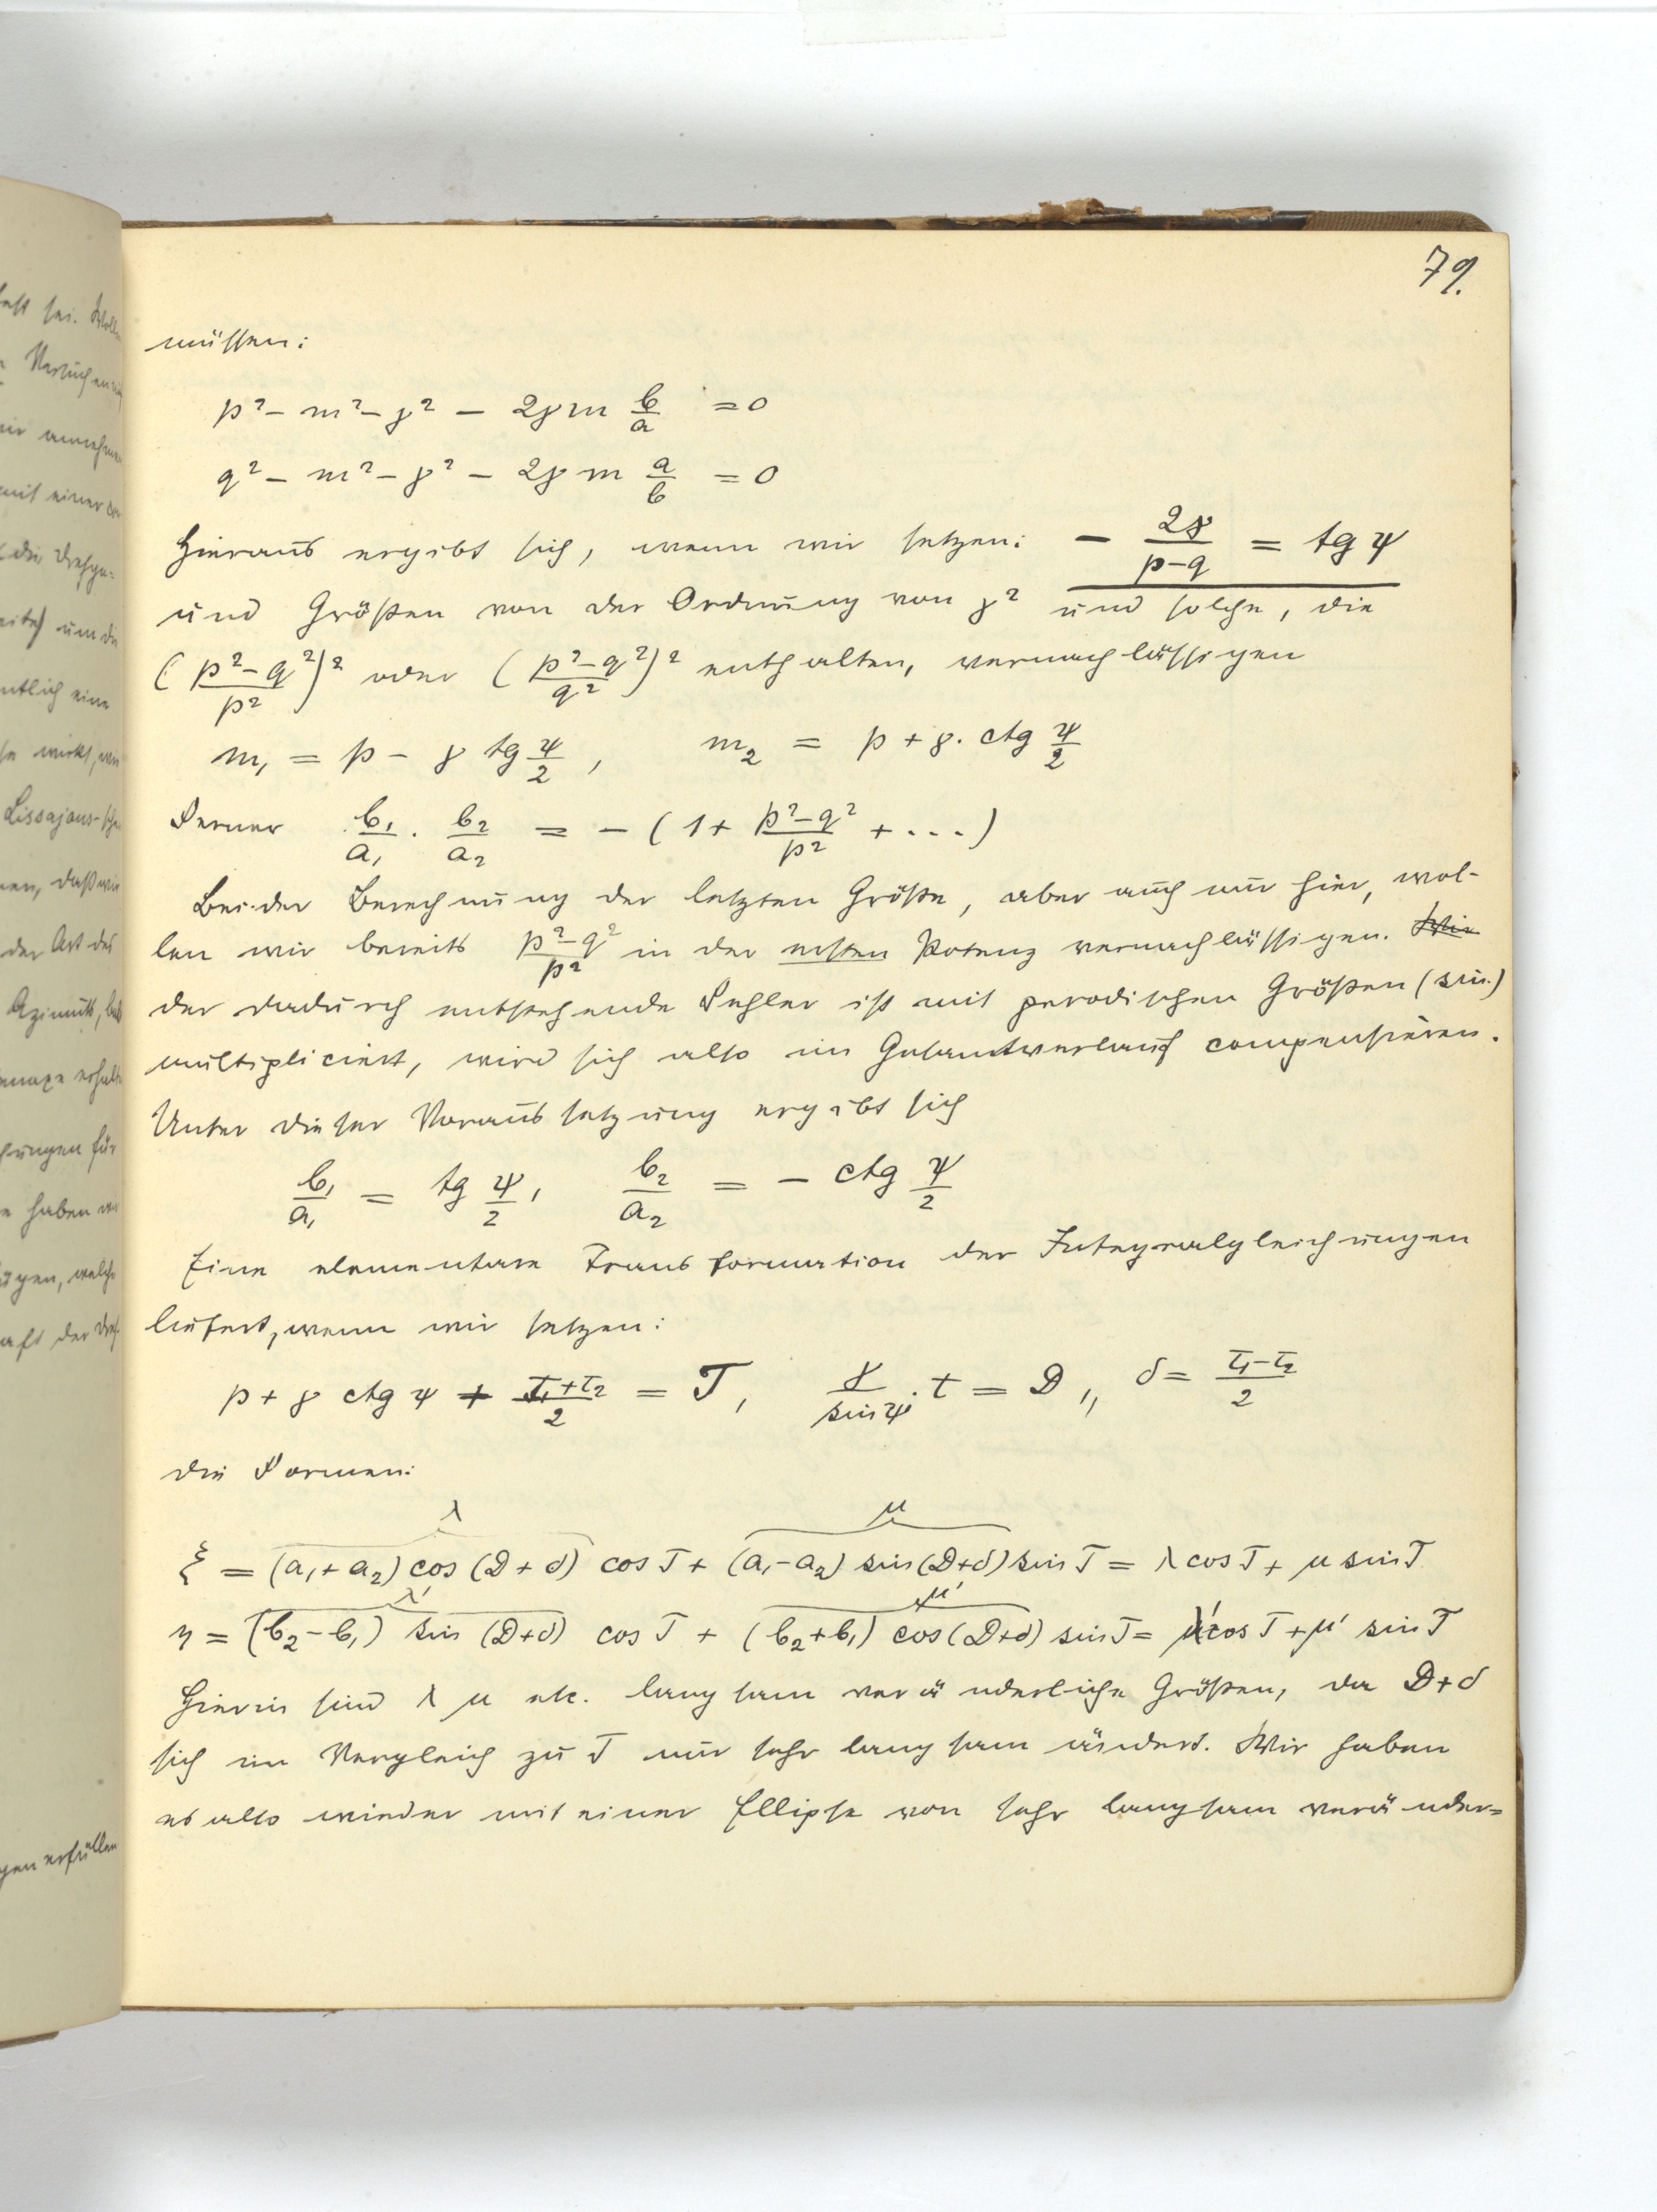 79.
müssen:
p² − m² − γ² − 2γm b/a = 0
q² − m² − γ² − 2γm a/b = 0
Hieraus ergibt sich, wenn wir setzen: − 2γ/(p−q) = tg ψ
und Größen von der Ordnung von γ² und solche, die
((p²−q²)/p²)² oder ((p²−q²)/q²)² enthalten, vernachlässigen
m₁ = p − γ tg ψ/2, m₂ = p + γ. ctg ψ/2
Ferner b₁/a₁ . b₂/a₂ = − (1 + (p²−q²)/p² + ...)
Bei der Berechnung der letzten Größe, aber auch nur hier, wol-
len wir bereits (p²−q²)/p² in der ersten Potenz vernachlässigen. Wir
der dadurch entstehende Fehler ist mit perodischen Größen (sin.)
multipliciert, wird sich also im Gesamtverlauf compensieren.
Unter dieser Voraussetzung ergibt sich
b₁/a₁ = tg ψ/2, b₂/a₂ = − ctg ψ/2
Eine elementare Transformation der Integralgleichungen
liefert, wenn wir setzen:
p + γ ctg ψ + (τ₁+τ₂)/2 = T, γ/sin ψ . t = D,, δ = (τ₁−τ₂)/2
die Formen:
λ μ
ξ = (a₁+a₂) cos (D+δ) cos T + (a₁−a₂) sin (D+δ) sin T = λ cos T + μ sin T
λ' μ'
η = (b₂−b₁) sin (D+δ) cos T + (b₂+b₁) cos (D+δ) sin T = λ' cos T + μ' sin T
Hierin sind λ μ etc. langsam veränderliche Größen, da D+δ
sich im Vergleich zu T nur sehr langsam ändert. Wir haben
es also wieder mit einer Ellipse von sehr langsam veränder=